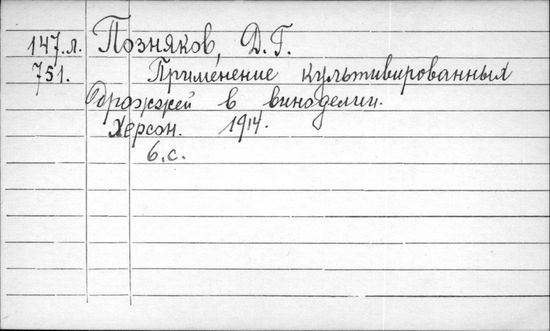 147.л. Позняков, Д.Г.
751. Применение культивированных
дрожжей в виноделии.
Херсон. 1914.
6.с.